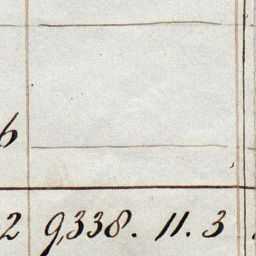 6
2 9,338. 11. 3